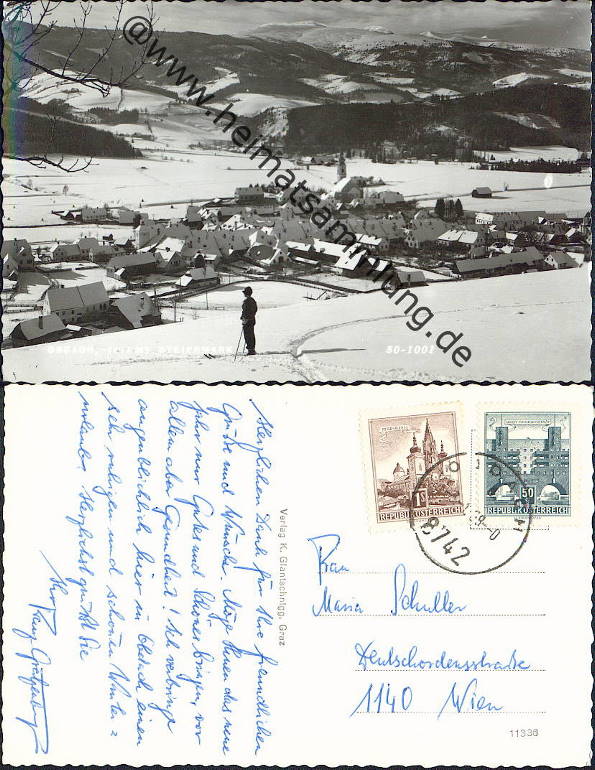 @www.heimatsammlung.de
STEIERMARK
80-1001
Herzlichen Dank für Ihre freundlichen
Grüße und Wünsche. Möge Ihnen das neue
Jahr nur Gutes und Schönes bringen, vor
allem aber Gesundheit! Ich verbringe
augenblicklich hier in Obdach einen
sehr ruhigen und schönen Winter =
urlaub. Herzlichst grüßt Sie
Ihr Franz
Verlag K. Glantschnigg, Graz
1S
REPUBLIK ÖSTERREICH
50
REPUBLIK ÖSTERREICH
8742
Frau
Maria Schuller
Deutschordensstraße
1140 Wien
11336